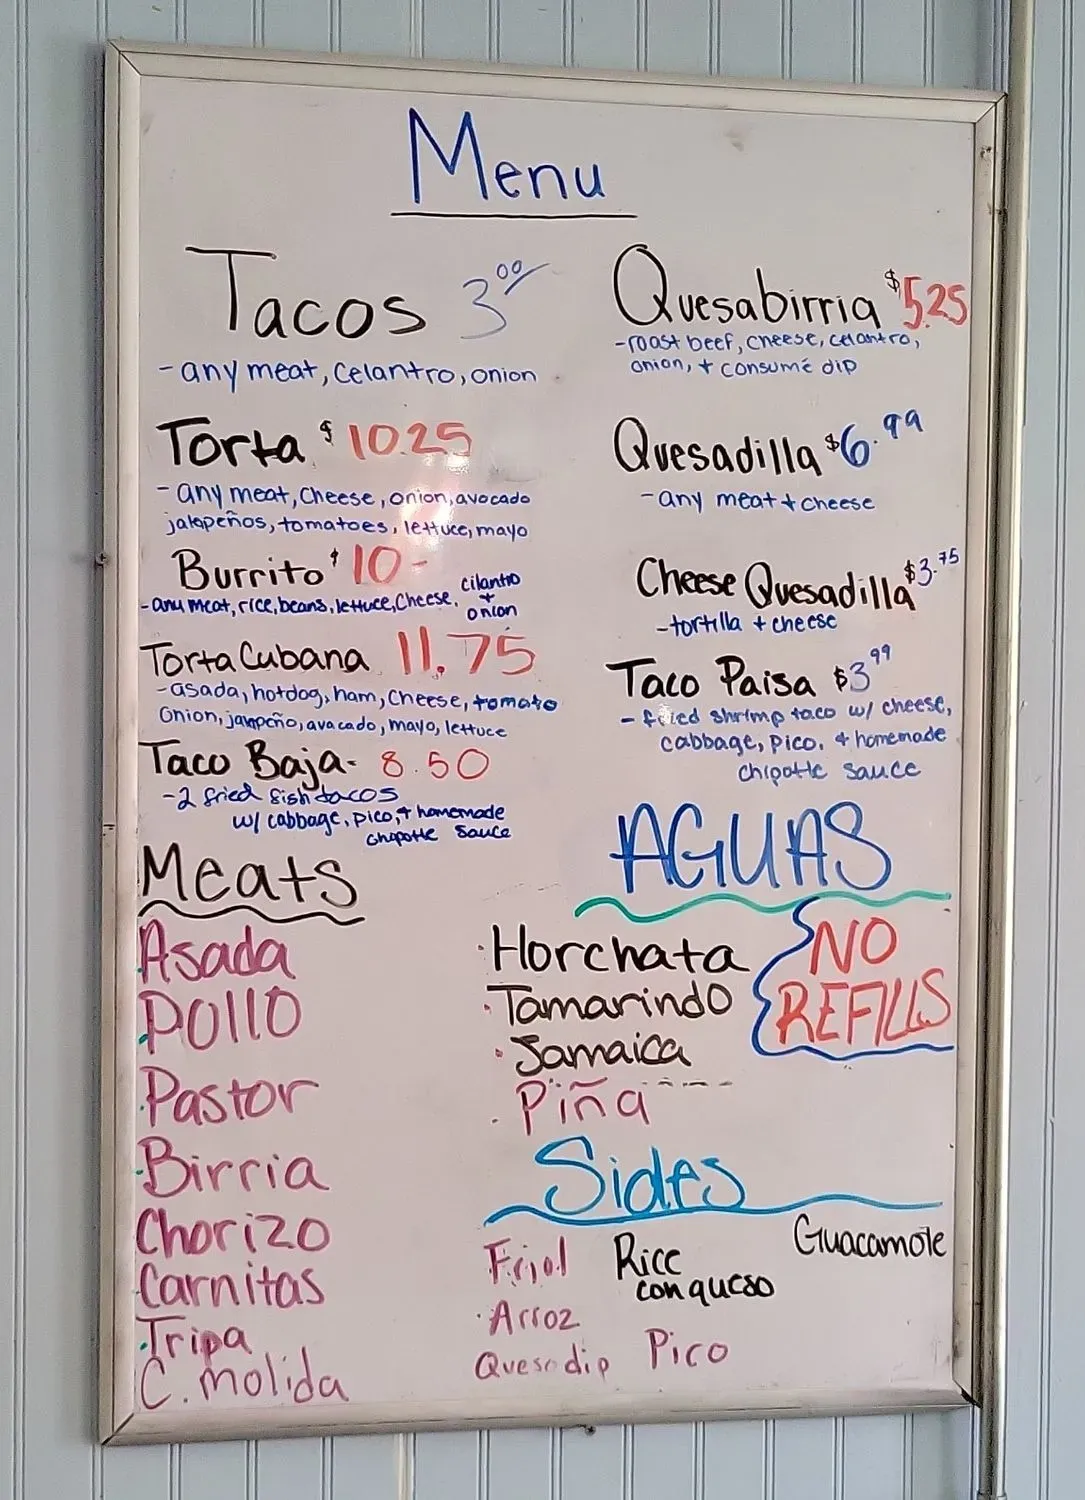 Menu
Tacos 3.00
- any meat, celantro, onion
Torta $10.25
- any meat, cheese, onion, avocado
jalapeños, tomatoes, lettuce, mayo
Burrito $10-
- any meat, rice, beans, lettuce, cheese, cilantro
+
onion
Torta Cubana 11.75
- asada, hotdog, ham, cheese, tomato
onion, jalapeño, avacado, mayo, lettuce
Taco Baja- 8.50
- 2 fried fish tacos
w/ cabbage, pico, + homemade
chipotle sauce
Quesabirria $5.25
- roast beef, cheese, celantro,
onion, + consumé dip
Quesadilla $6.99
- any meat + cheese
Cheese Quesadilla $3.75
- tortilla + cheese
Taco Paisa $3.99
- fried shrimp taco w/ cheese,
cabbage, pico, + homemade
chipotle sauce
Meats
Asada
Pollo
Pastor
Birria
Chorizo
Carnitas
Tripa
C. molida
AGUAS
· Horchata
· Tamarindo
· Jamaica
· Piña
NO
REFILLS
Sides
Frijol
· Arroz
Queso dip
Rice
con queso
Pico
Guacamole